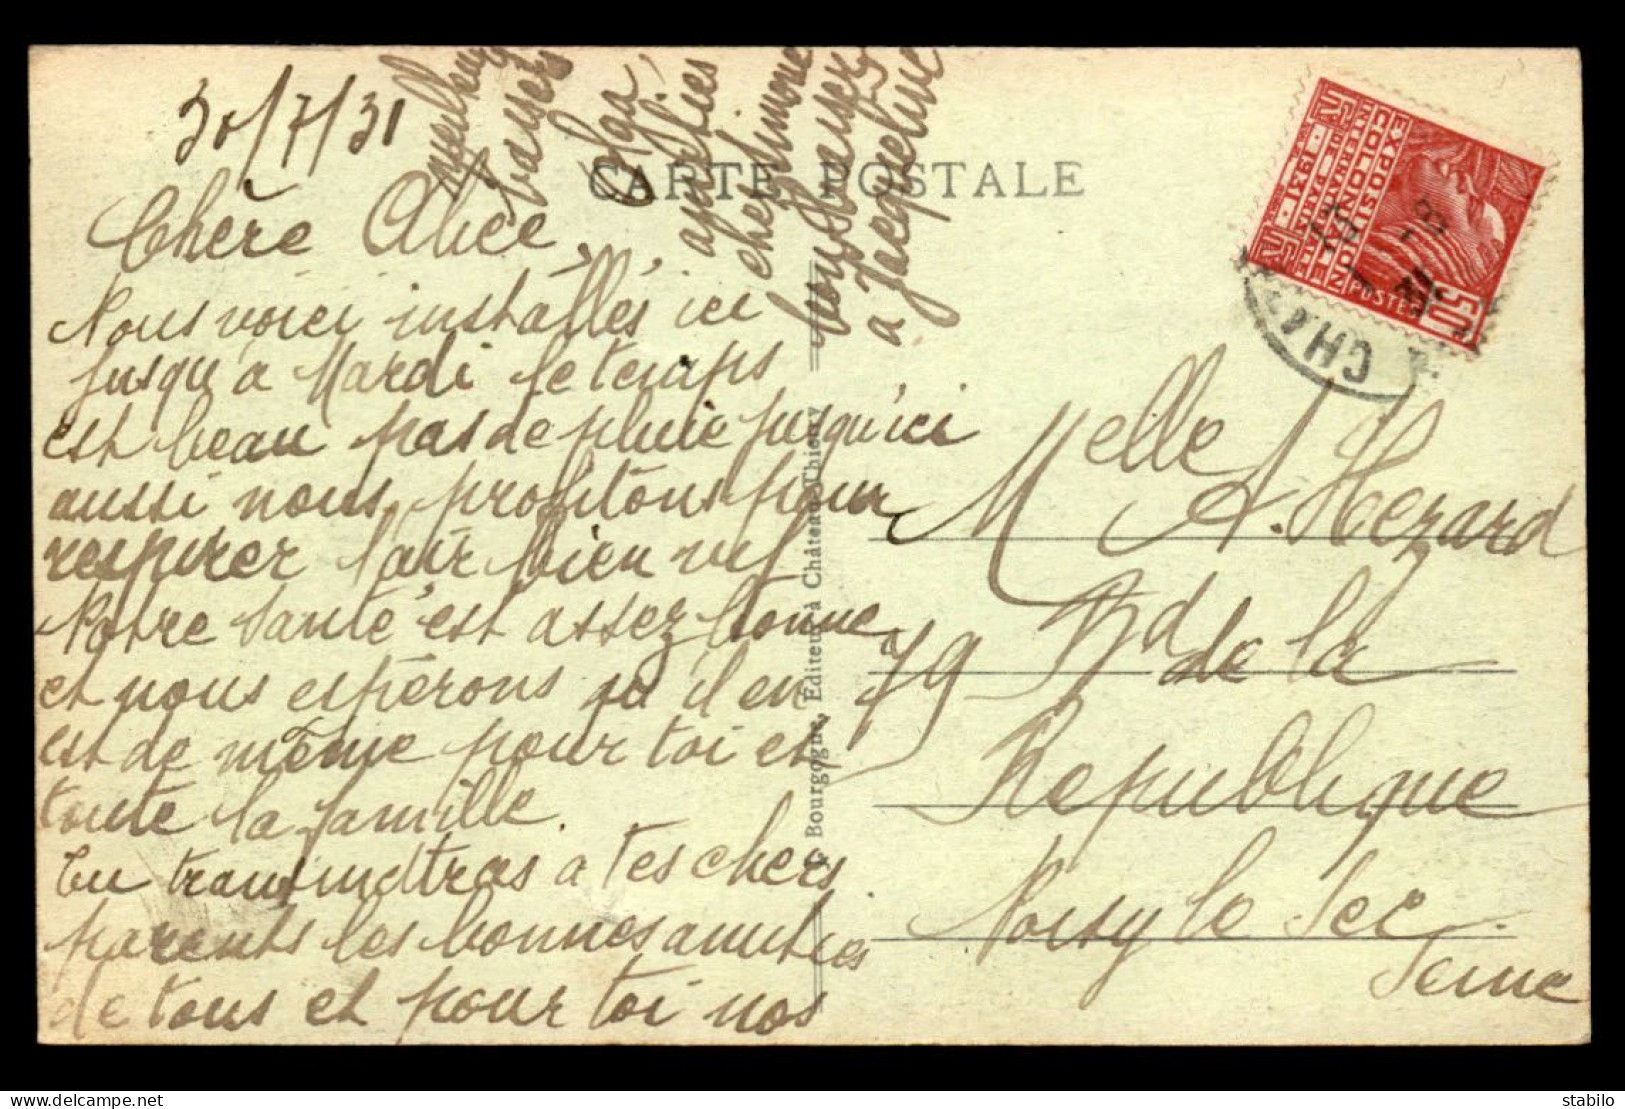 30/7/31
Chère Alice,
Nous voici installés ici
jusqu'a Mardi le temps
est beau pas de pluie jusqu'ici
aussi nous profitons pour
respirer l'air bien vif
Notre santé est assez bonne
et nous espérons qu'il en
est de même pour toi et
toute la famille.
Tu transmettras a tes chers
parents les bonnes amitiés
de tous et pour toi nos
meilleurs
baisers
Olga
amitiés
chez Simone
bons baisers
a Jacqueline
CARTE POSTALE
Bourgogne, Editeur à Château-Thierry
EXPOSITION
COLONIALE
INTERNATIONALE
DE PARIS
1931
POSTES
50
CHA
Melle A. Hezard
79 Bd de la
République
Noisy le Sec
Seine
stabilo